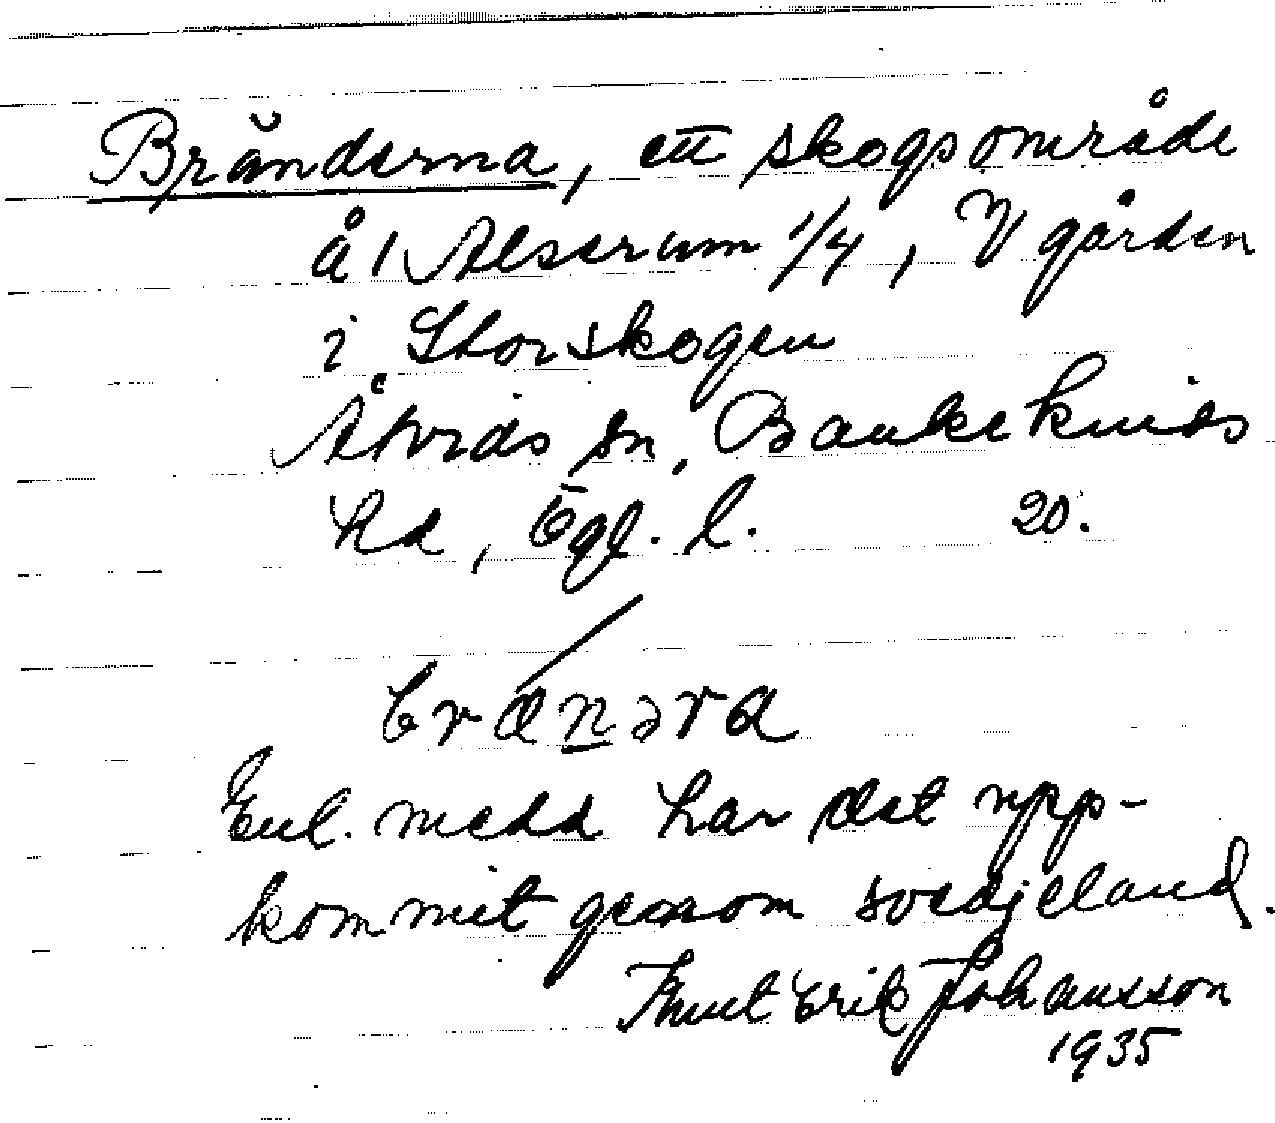 Bränderna, ett skogsområde
å 1 Alserum 1/4, V gården
i Storskogen
Åtvids sn, Bankekinds
hd, Ögl. l. 20.
brænəra
Enl. medd har det upp-
kommit genom svedjeland.
Knut Erik Johansson
1935